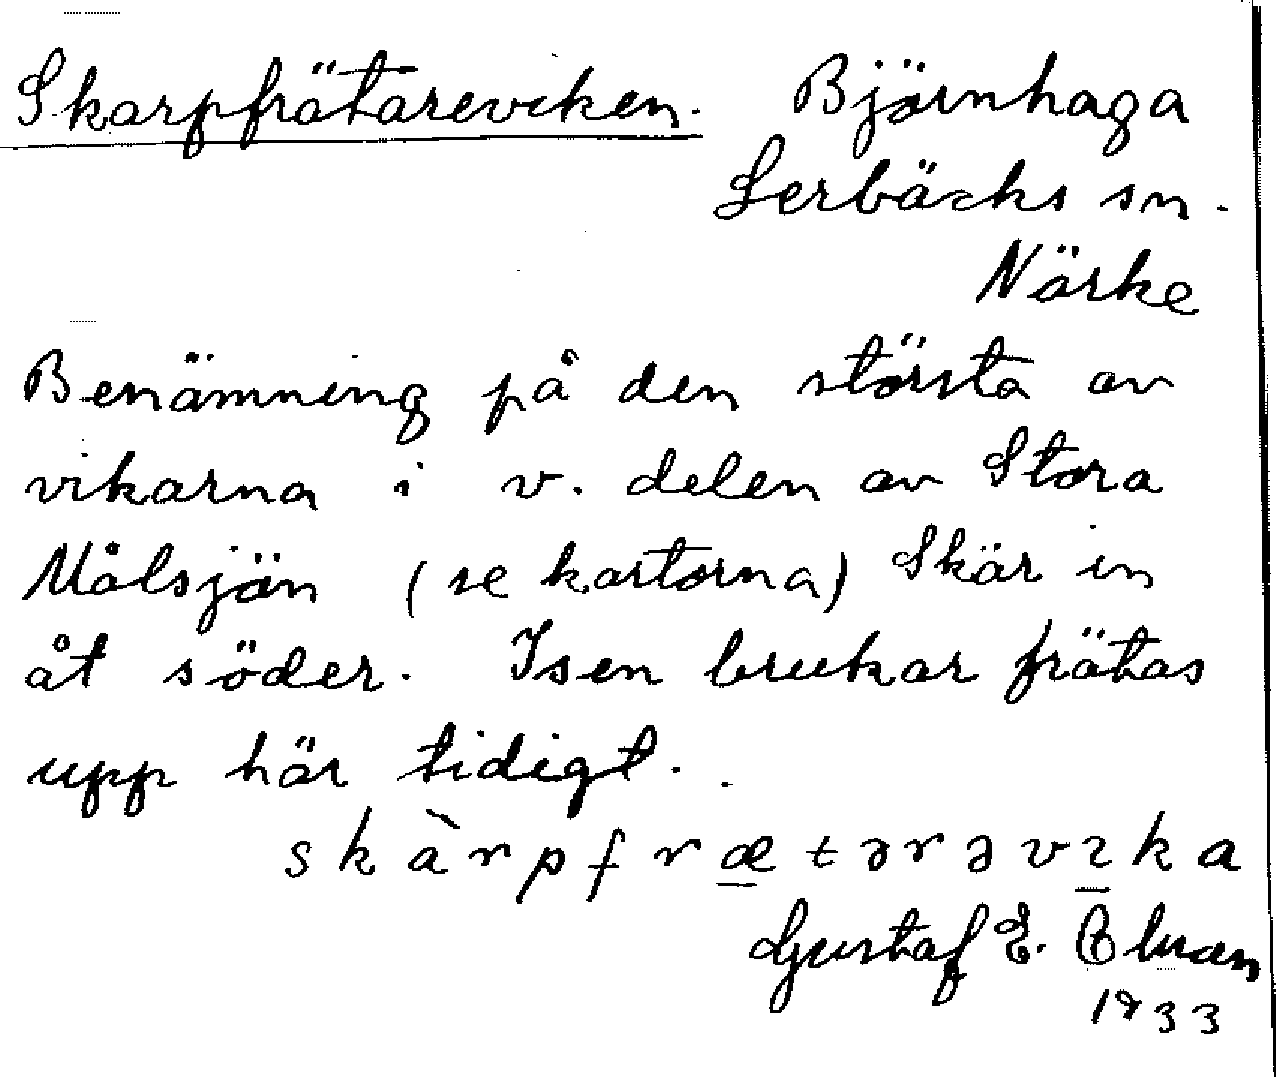 Skarpfrätareviken. Björnhaga
Lerbäcks sn.
Närke
Benämning på den största av
vikarna i v. delen av Stora
Målsjön (se kartorna) Skär in
åt söder. Isen brukar frätas
upp här tidigt.
skàrpfrætərəvɩka
Gustaf E.
1933